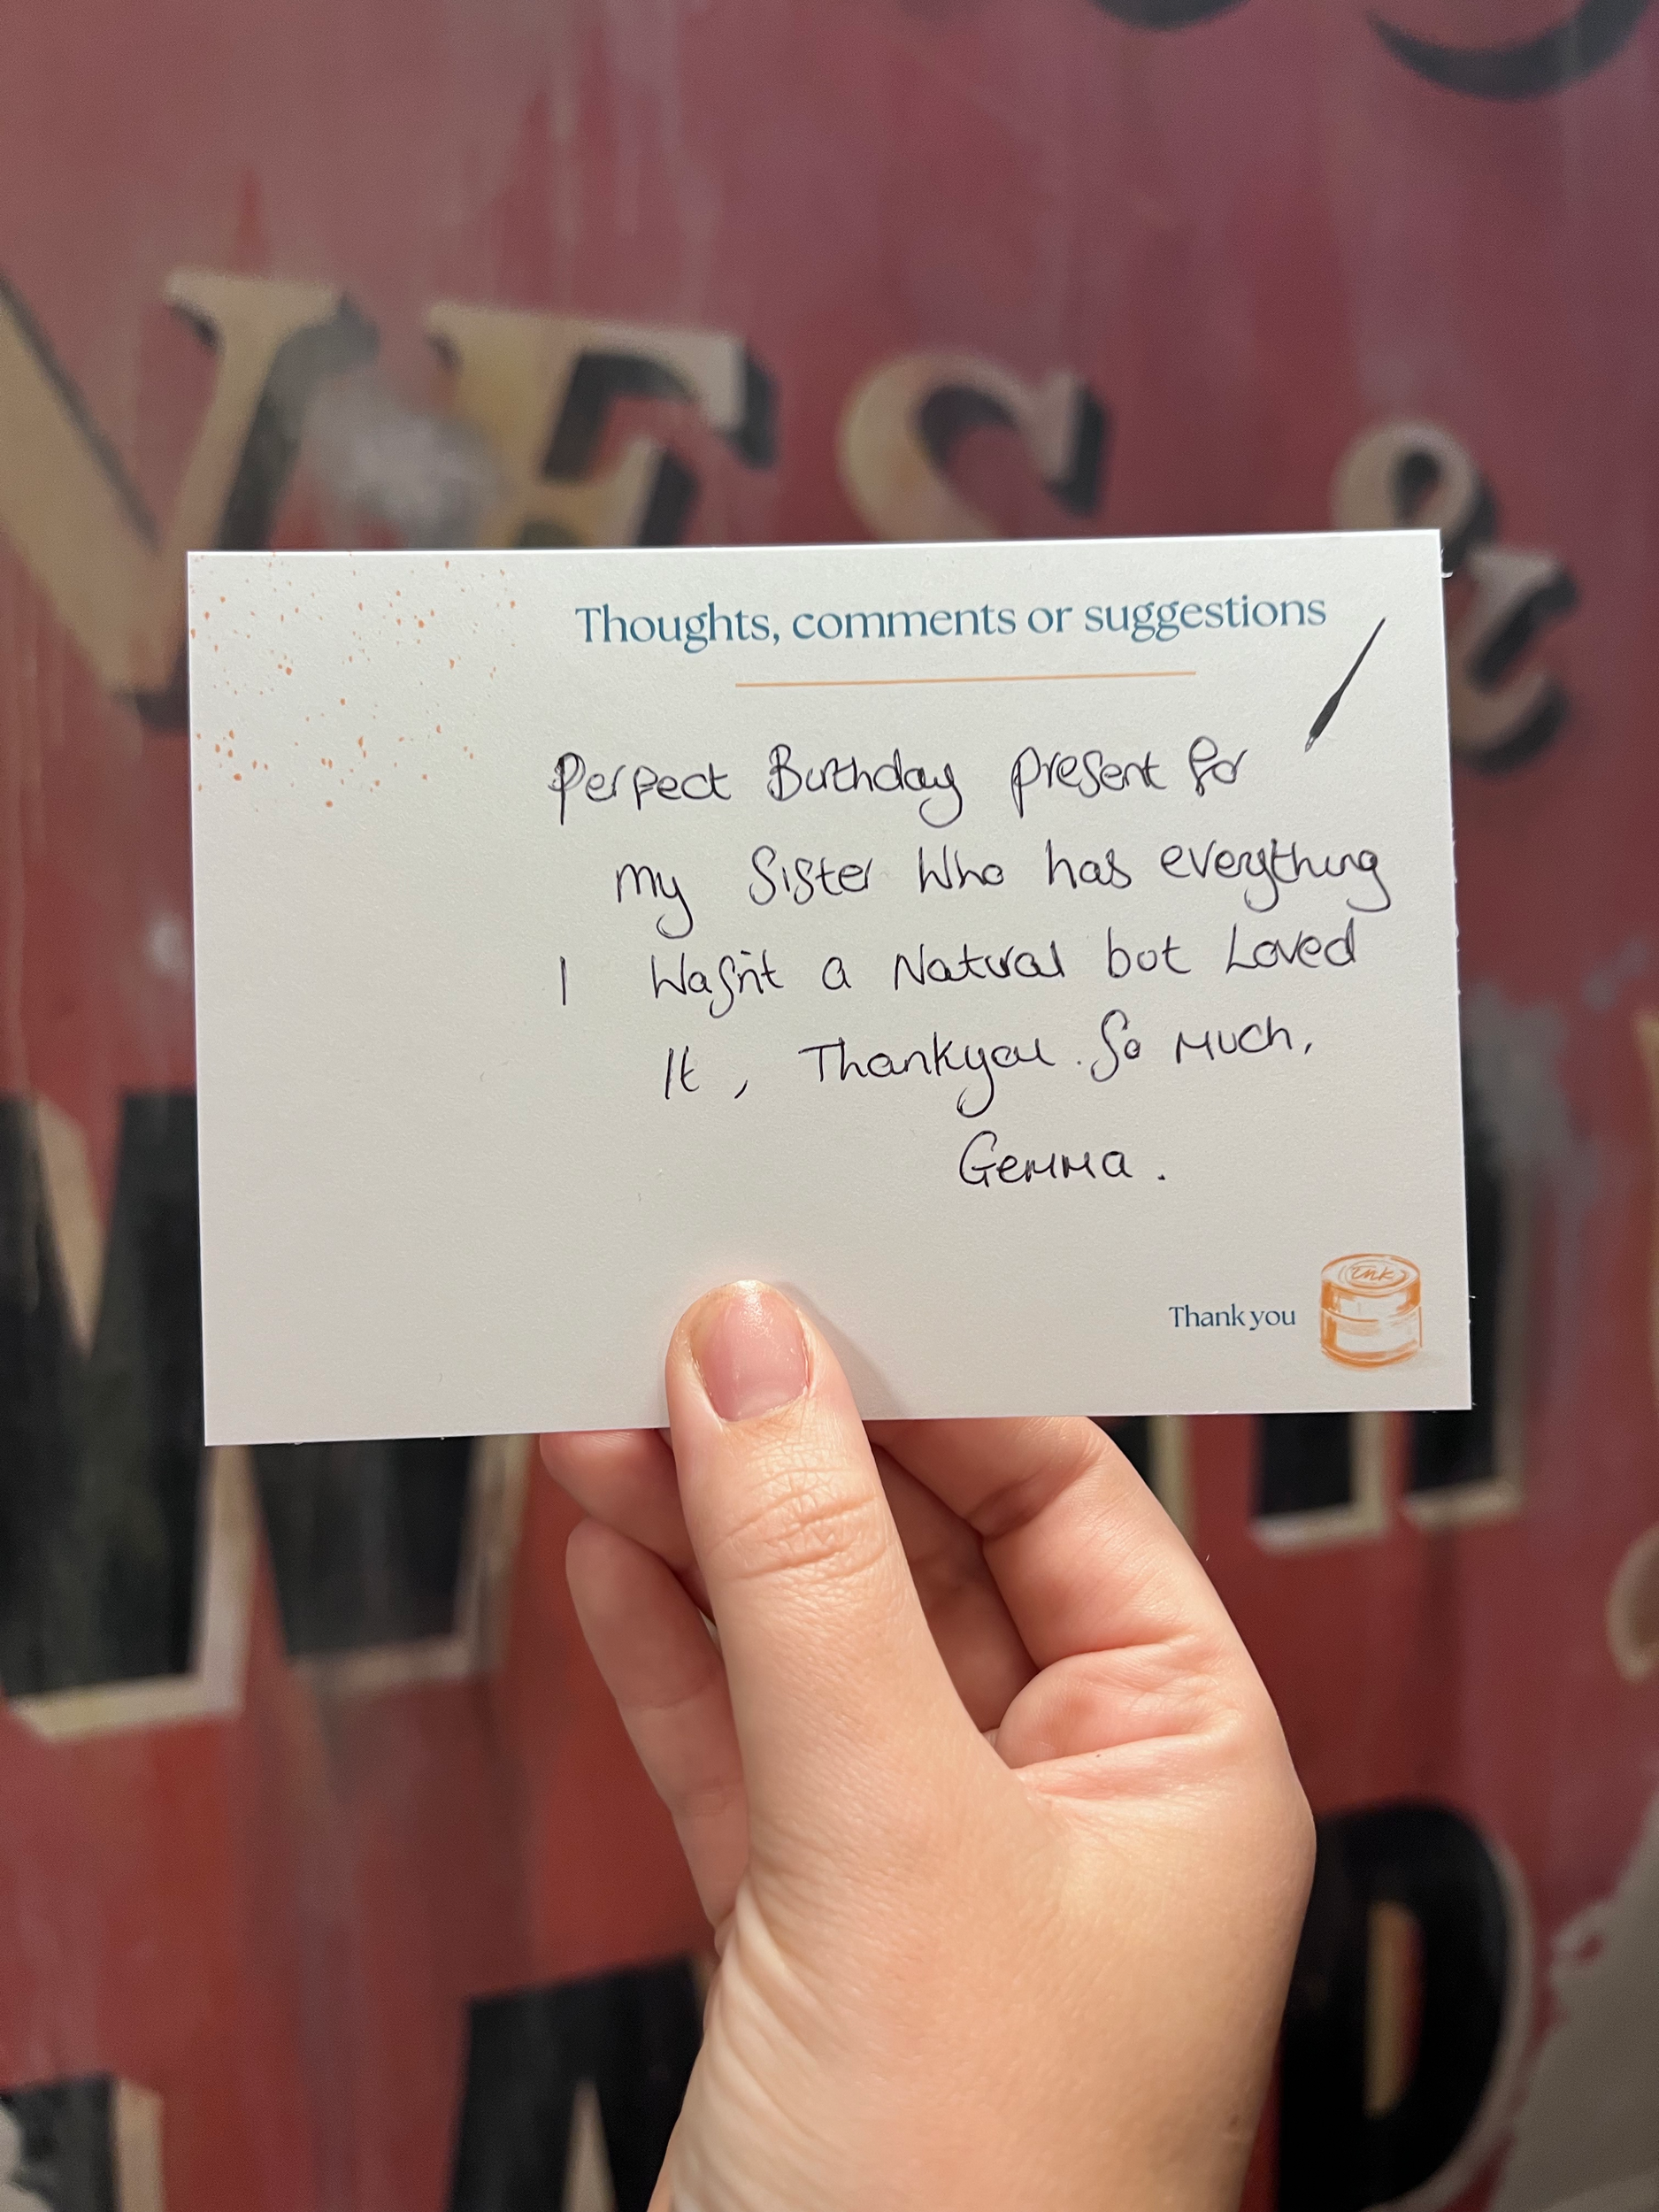 VES &
Thoughts, comments or suggestions
Perfect Birthday present for
my Sister Who has everything
I Wasn't a Natural but Loved
It, Thankyou. So Much,
Gemma.
Ink
Thank you